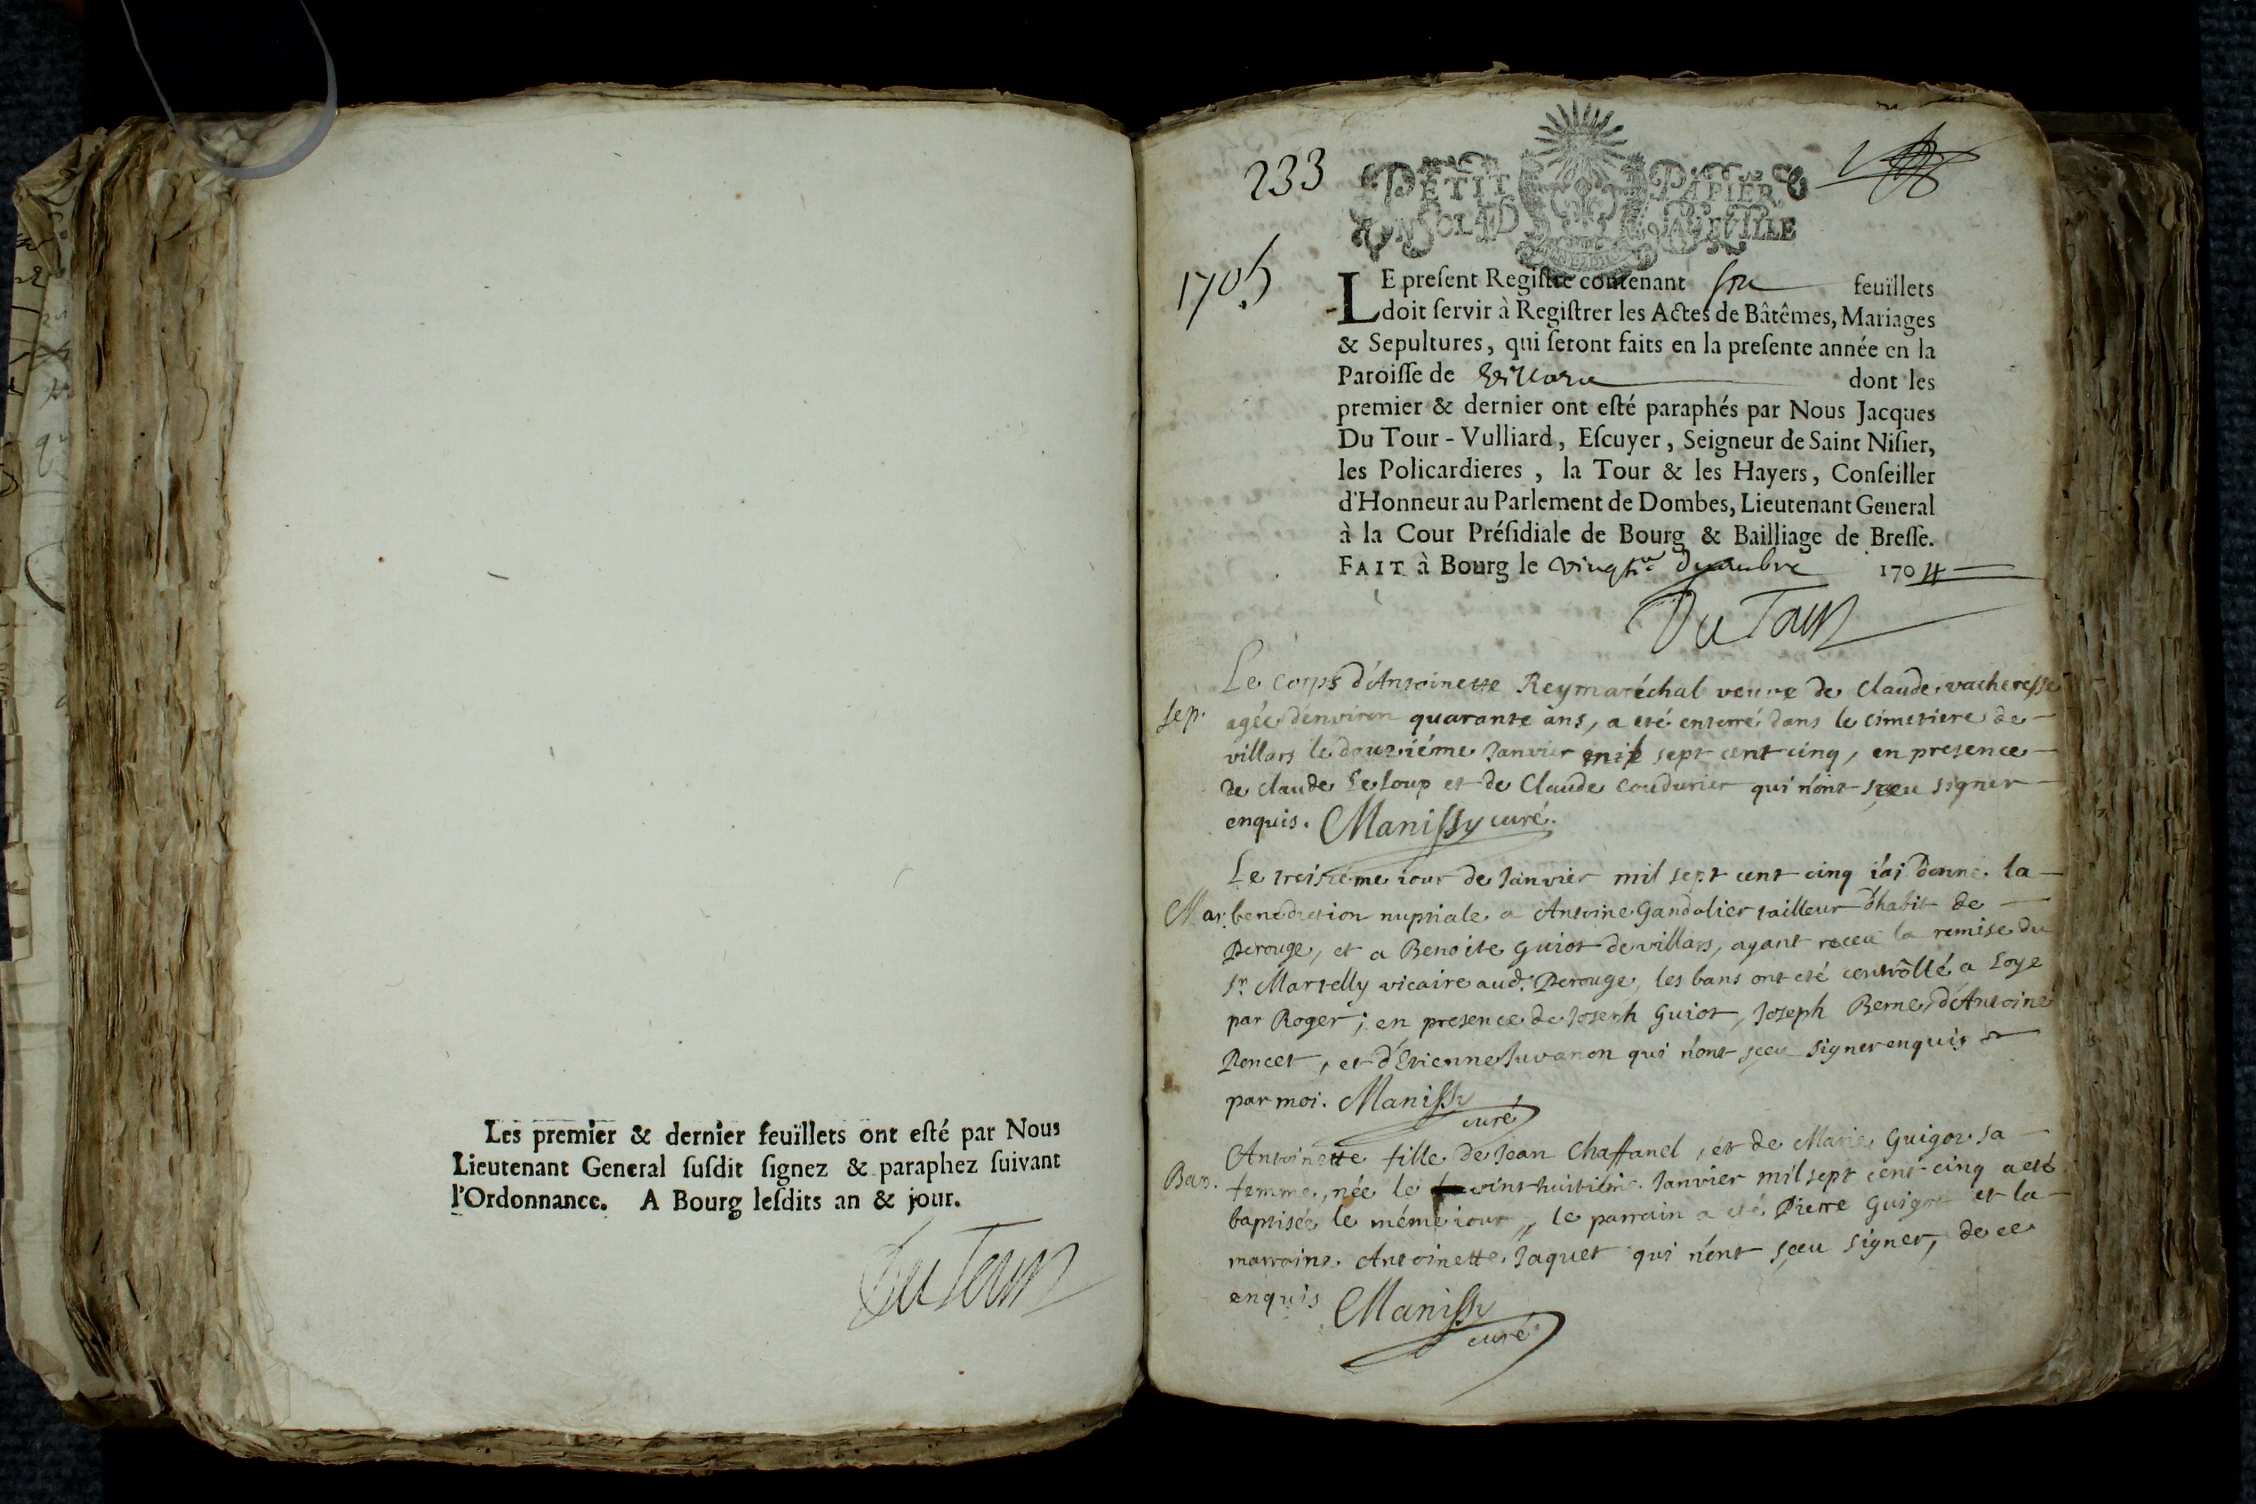 Les premier & dernier feuïllets ont esté par Nous
Lieutenant General susdit signez & paraphez suivant
l'Ordonnance. A Bourg lesdits an & jour.
Du Tour
233
PETIT PAPIER
1705
LE present Registre contenant six feuïllets
doit servir à Registrer les Actes de Bâtêmes, Mariages
& Sepultures, qui seront faits en la presente année en la
Paroisse de Villars dont les
premier & dernier ont esté paraphés par Nous Jacques
Du Tour - Vulliard, Escuyer, Seigneur de Saint Nisier,
les Policardieres, la Tour & les Hayers, Conseiller
d'Honneur au Parlement de Dombes, Lieutenant General
à la Cour Présidiale de Bourg & Bailliage de Bresse.
FAIT à Bourg le decembre 1704
Du Tour
Le corps d'Antoinette Reymaréchal veuve de Claude vacheresse
sep. agée d'environ quarante ans, a eté enterré dans le cimetiere de
villars le douziéme Janvier mil sept cent cinq, en presence
de claude Le loup et de Claude coudurier qui n'ont sceu signer
enquis. Manissy curé.
Le troisiéme iour de Janvier mil sept cent cinq i'ai donné la
Mar. benediction nuptiale a Antoine Gandolier tailleur d'habit de
Perouge, et a Benoite Guiot de villars, ayant receu la remise du
Sr. Martelly vicaire aud. Perouge, les bans ont eté controllé a Loye
par Roger; en presence de Joseph Guiot, Joseph Berne, d'Antoine
Poncet, et d'Etienne Juvanon qui n'ont sceu signer enquis
par moi. Manissy
curé
Antoinette fille de Jean Chaffanel, et de Marie Guigot sa
Bap. femme, née le vint huitiéme Janvier mil sept cent cinq a eté
baptisée le même iour, le parrain a eté Pierre Guigot et la
marraine Antoinette Jaquet qui n'ont sceu signer, de ce
enquis Manissy
curé